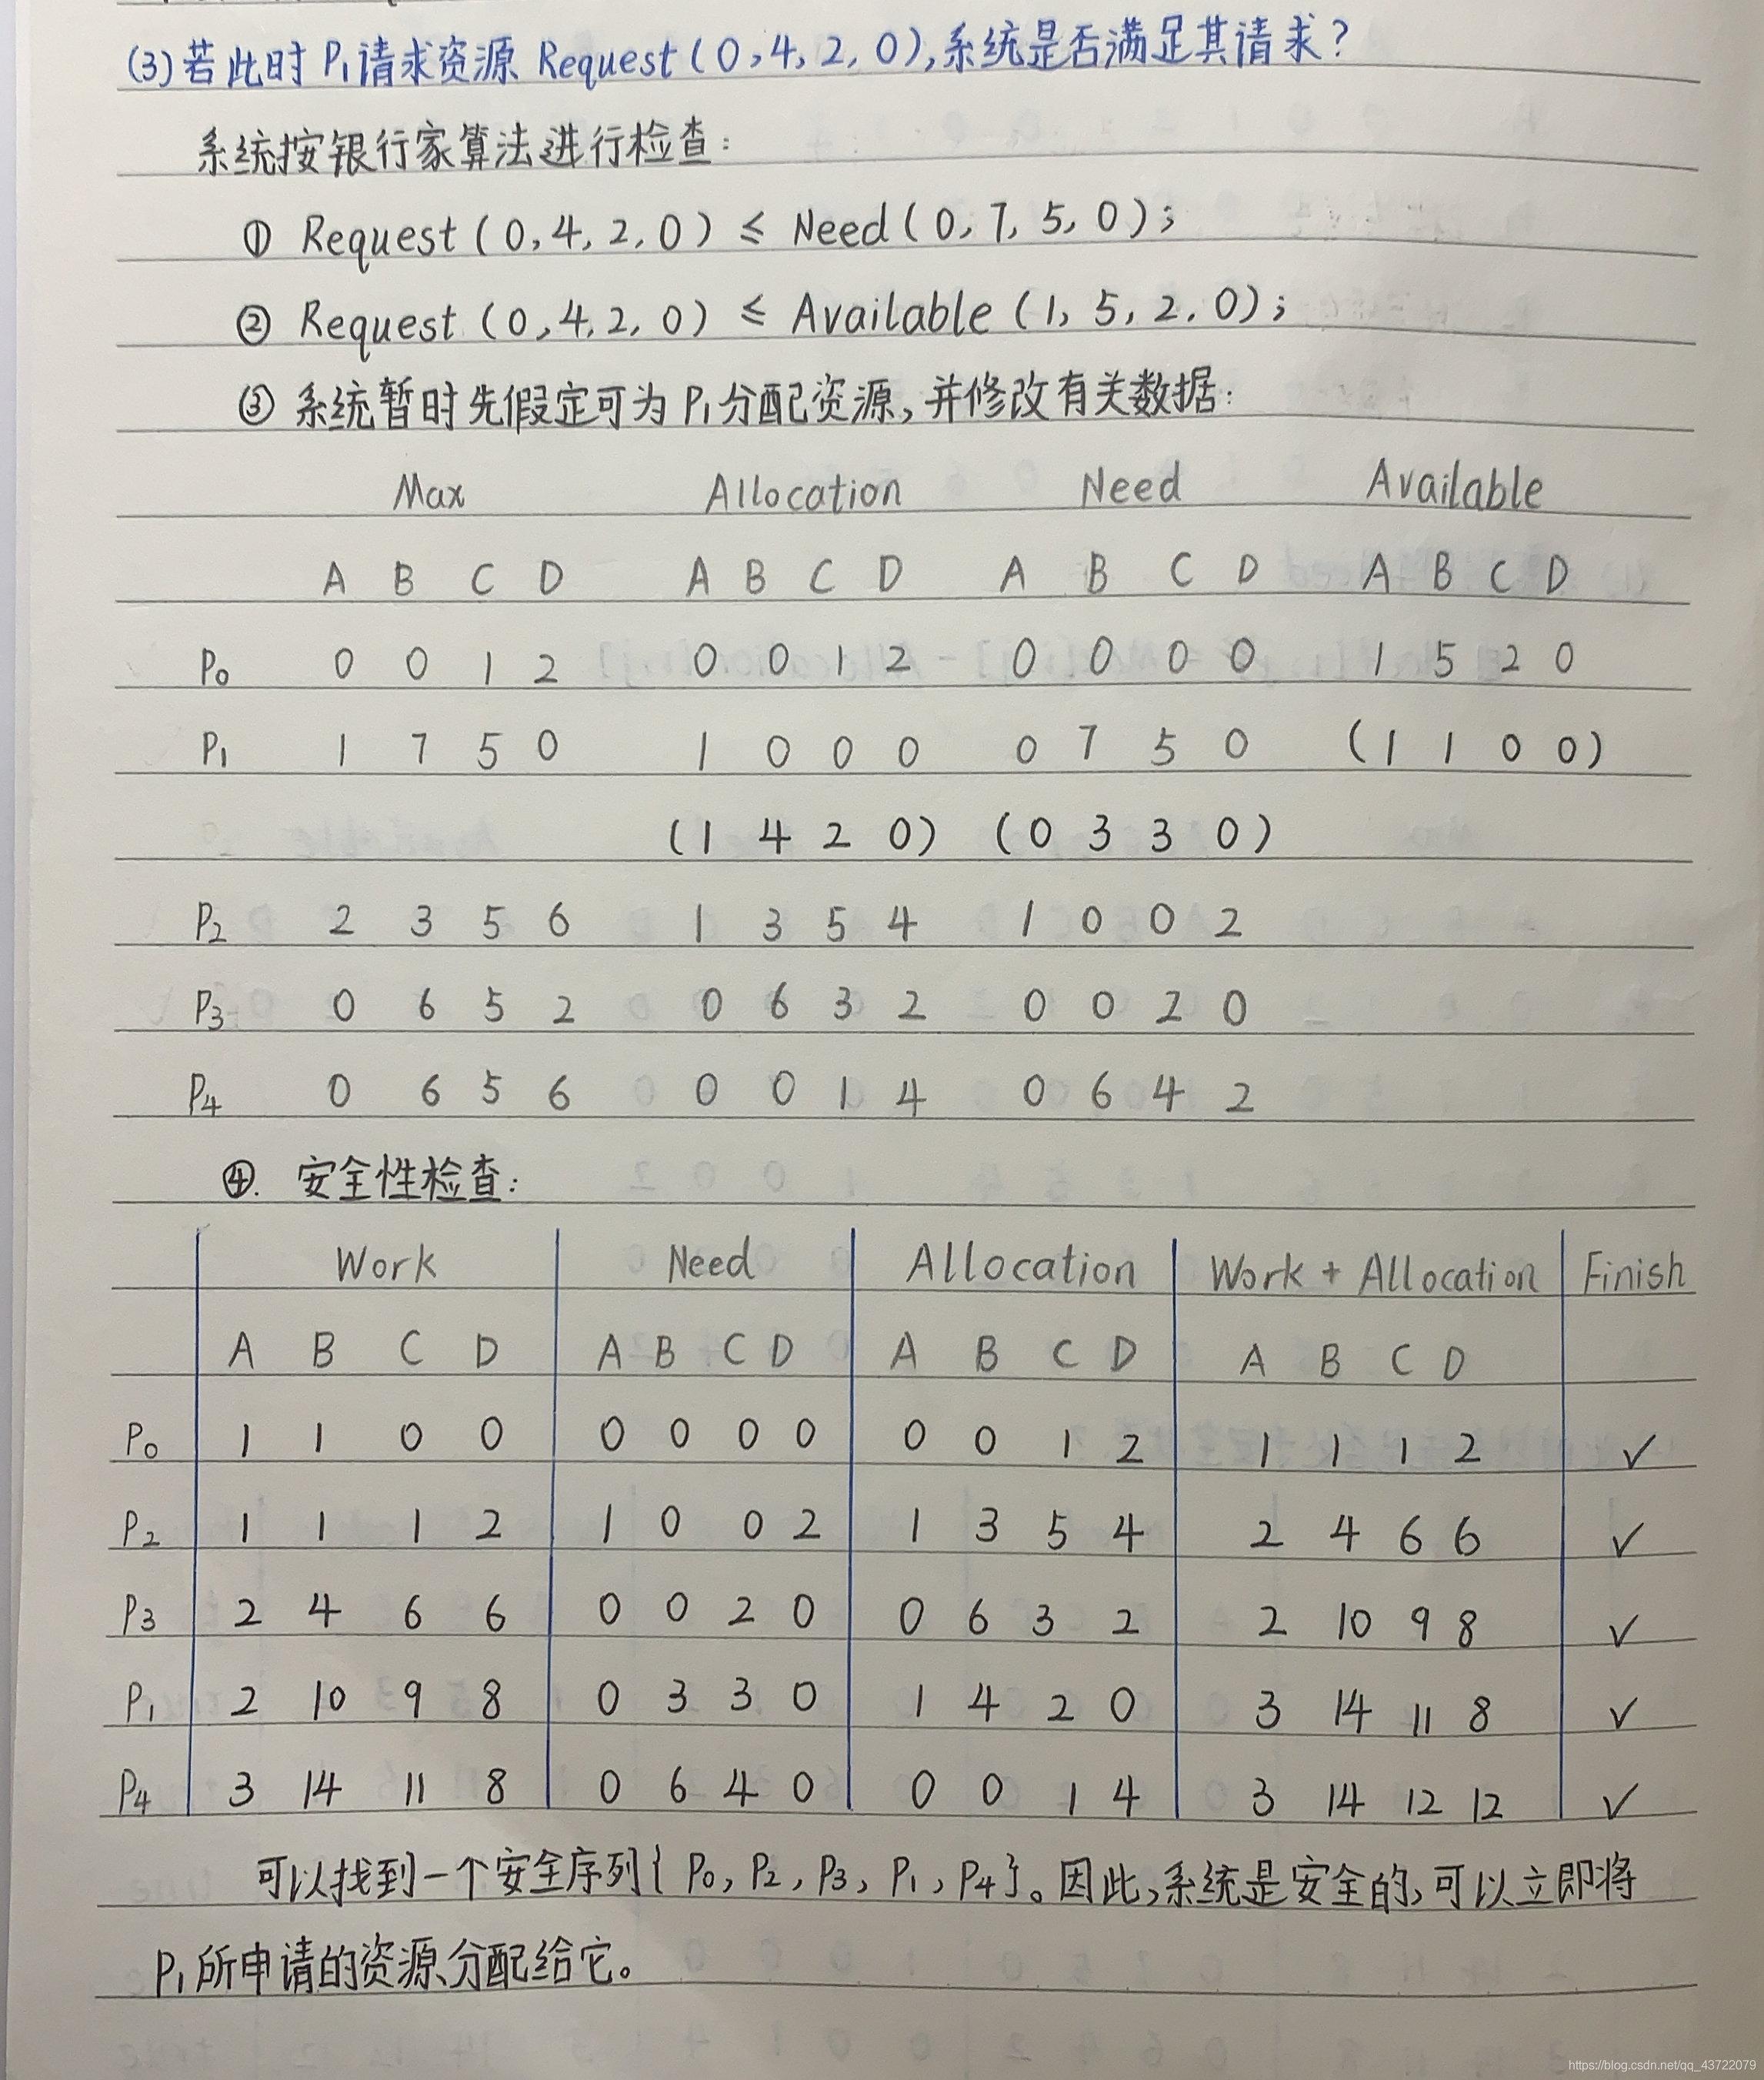 (3)若此时P₁请求资源 Request(0,4,2,0),系统是否满足其请求?
系统按银行家算法进行检查:
① Request(0,4,2,0) ≤ Need(0,7,5,0);
② Request(0,4,2,0) ≤ Available(1,5,2,0);
③ 系统暂时先假定可为P₁分配资源,并修改有关数据:
Max Allocation Need Available
A B C D A B C D A B C D A B C D
P₀ 0 0 1 2 0 0 1 2 0 0 0 0 1 5 2 0
P₁ 1 7 5 0 1 0 0 0 0 7 5 0 (1 1 0 0)
(1 4 2 0) (0 3 3 0)
P₂ 2 3 5 6 1 3 5 4 1 0 0 2
P₃ 0 6 5 2 0 6 3 2 0 0 2 0
P₄ 0 6 5 6 0 0 1 4 0 6 4 2
④. 安全性检查:
Work Need Allocation Work + Allocation Finish
A B C D A B C D A B C D A B C D
P₀ 1 1 0 0 0 0 0 0 0 0 1 2 1 1 1 2 ✓
P₂ 1 1 1 2 1 0 0 2 1 3 5 4 2 4 6 6 ✓
P₃ 2 4 6 6 0 0 2 0 0 6 3 2 2 10 9 8 ✓
P₁ 2 10 9 8 0 3 3 0 1 4 2 0 3 14 11 8 ✓
P₄ 3 14 11 8 0 6 4 0 0 0 1 4 3 14 12 12 ✓
可以找到一个安全序列{P₀,P₂,P₃,P₁,P₄}。因此,系统是安全的,可以立即将
P₁所申请的资源分配给它。
https://blog.csdn.net/qq_43722079